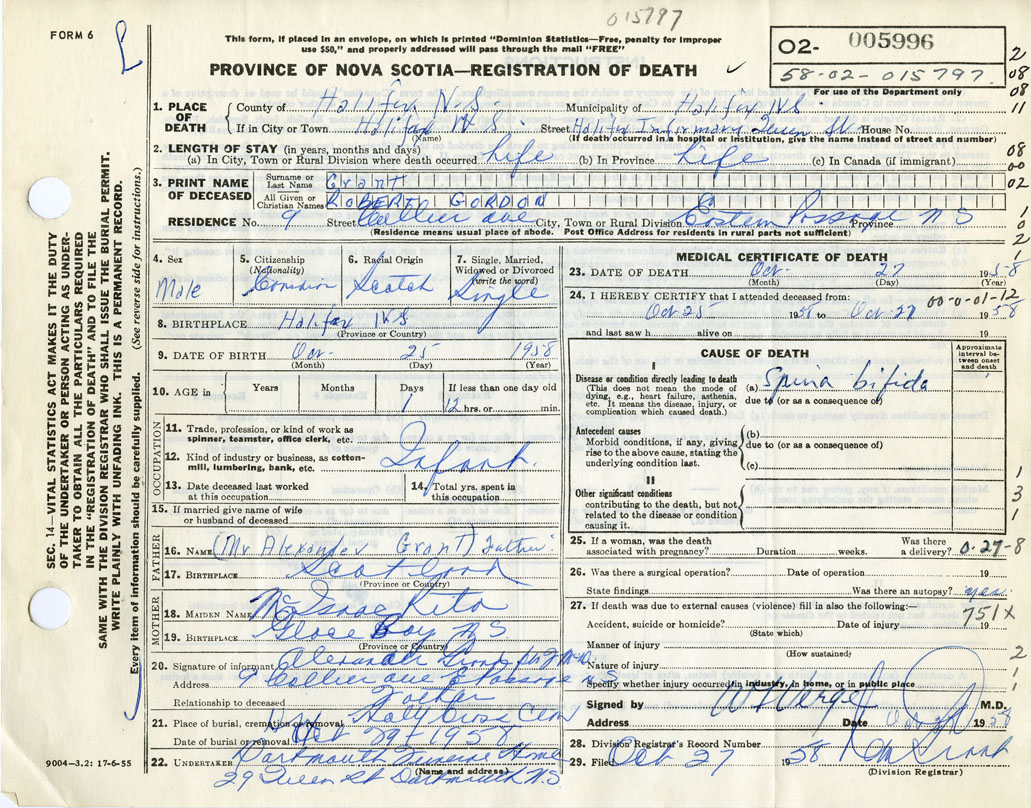 015797
FORM 6
This form, if placed in an envelope, on which is printed "Dominion Statistics—Free, penalty for improper
use $50," and properly addressed will pass through the mail "FREE"
PROVINCE OF NOVA SCOTIA—REGISTRATION OF DEATH
02- 005996
58-02-015797.
For use of the Department only
1. PLACE OF DEATH
County of Halifax N.S. Municipality of Halifax NS
If in City or Town Halifax N S Street Halifax Infirmary Queen St. House No.
(Name) (If death occurred in a hospital or institution, give the name instead of street and number)
2. LENGTH OF STAY (in years, months and days)
(a) In City, Town or Rural Division where death occurred Life (b) In Province Life (c) In Canada (if immigrant)
3. PRINT NAME OF DECEASED
Surname or Last Name Grant
All Given or Christian Names ROBERT GORDON
RESIDENCE No. 9 Street Collier ave City, Town or Rural Division Eastern Passage N S Province
(Residence means usual place of abode. Post Office Address for residents in rural parts not sufficient)
4. Sex Male
5. Citizenship (Nationality) Canadian
6. Racial Origin Scotch
7. Single, Married, Widowed or Divorced (write the word) Single
8. BIRTHPLACE Halifax NS
(Province or Country)
9. DATE OF BIRTH Oct. 25 1958
(Month) (Day) (Year)
10. AGE in Years Months Days 1 If less than one day old 12 hrs. or min.
OCCUPATION
11. Trade, profession, or kind of work as spinner, teamster, office clerk, etc.
12. Kind of industry or business, as cotton-mill, lumbering, bank, etc. Infant.
13. Date deceased last worked at this occupation
14. Total yrs. spent in this occupation
15. If married give name of wife or husband of deceased
FATHER
16. NAME (Mr. Alexander Grant) Father
17. BIRTHPLACE Scotland
(Province or Country)
MOTHER
18. MAIDEN NAME McIsaac Rita
19. BIRTHPLACE Glace Bay NS
(Province or Country)
20. Signature of informant Alexander Grant
Address 9 Collier ave E Passage N S
Relationship to deceased Father
21. Place of burial, cremation or removal Holy Cross Cem
Date of burial or removal Oct 29th 1958
22. UNDERTAKER Dartmouth Funeral Home
(Name and address)
29 Queen St. Dartmouth N.S
9004—3.2: 17-6-55
MEDICAL CERTIFICATE OF DEATH
23. DATE OF DEATH Oct. 27 1958
(Month) (Day) (Year)
00-0-01-12
24. I HEREBY CERTIFY that I attended deceased from:
Oct 25 1958 to Oct 27 1958
and last saw h alive on 19
CAUSE OF DEATH
Approximate interval between onset and death
I
Disease or condition directly leading to death
(This does not mean the mode of dying, e.g., heart failure, asthenia, etc. It means the disease, injury, or complication which caused death.)
(a) Spina bifida
due to (or as a consequence of)
Antecedent causes
Morbid conditions, if any, giving rise to the above cause, stating the underlying condition last.
(b)
due to (or as a consequence of)
(c)
II
Other significant conditions
contributing to the death, but not related to the disease or condition causing it.
25. If a woman, was the death associated with pregnancy? Duration weeks. Was there a delivery? 0-27-8
26. Was there a surgical operation? Date of operation 19
State findings Was there an autopsy? yes.
27. If death was due to external causes (violence) fill in also the following:—
751X
Accident, suicide or homicide? Date of injury 19
(State which)
Manner of injury
(How sustained)
Nature of injury
Specify whether injury occurred in industry, in home, or in public place
Signed by M.D.
Address Date 1958
28. Division Registrar's Record Number
29. Filed Oct 27 1958
(Division Registrar)
SEC. 14—VITAL STATISTICS ACT MAKES IT THE DUTY
OF THE UNDERTAKER OR PERSON ACTING AS UNDER-
TAKER TO OBTAIN ALL THE PARTICULARS REQUIRED
IN THE "REGISTRATION OF DEATH" AND TO FILE THE
SAME WITH THE DIVISION REGISTRAR WHO SHALL ISSUE THE BURIAL PERMIT.
WRITE PLAINLY WITH UNFADING INK. THIS IS A PERMANENT RECORD.
Every item of information should be carefully supplied. (See reverse side for instructions.)
2
08
08
11
08
00
02
1
0
2
1
1
3
1
2
1
1